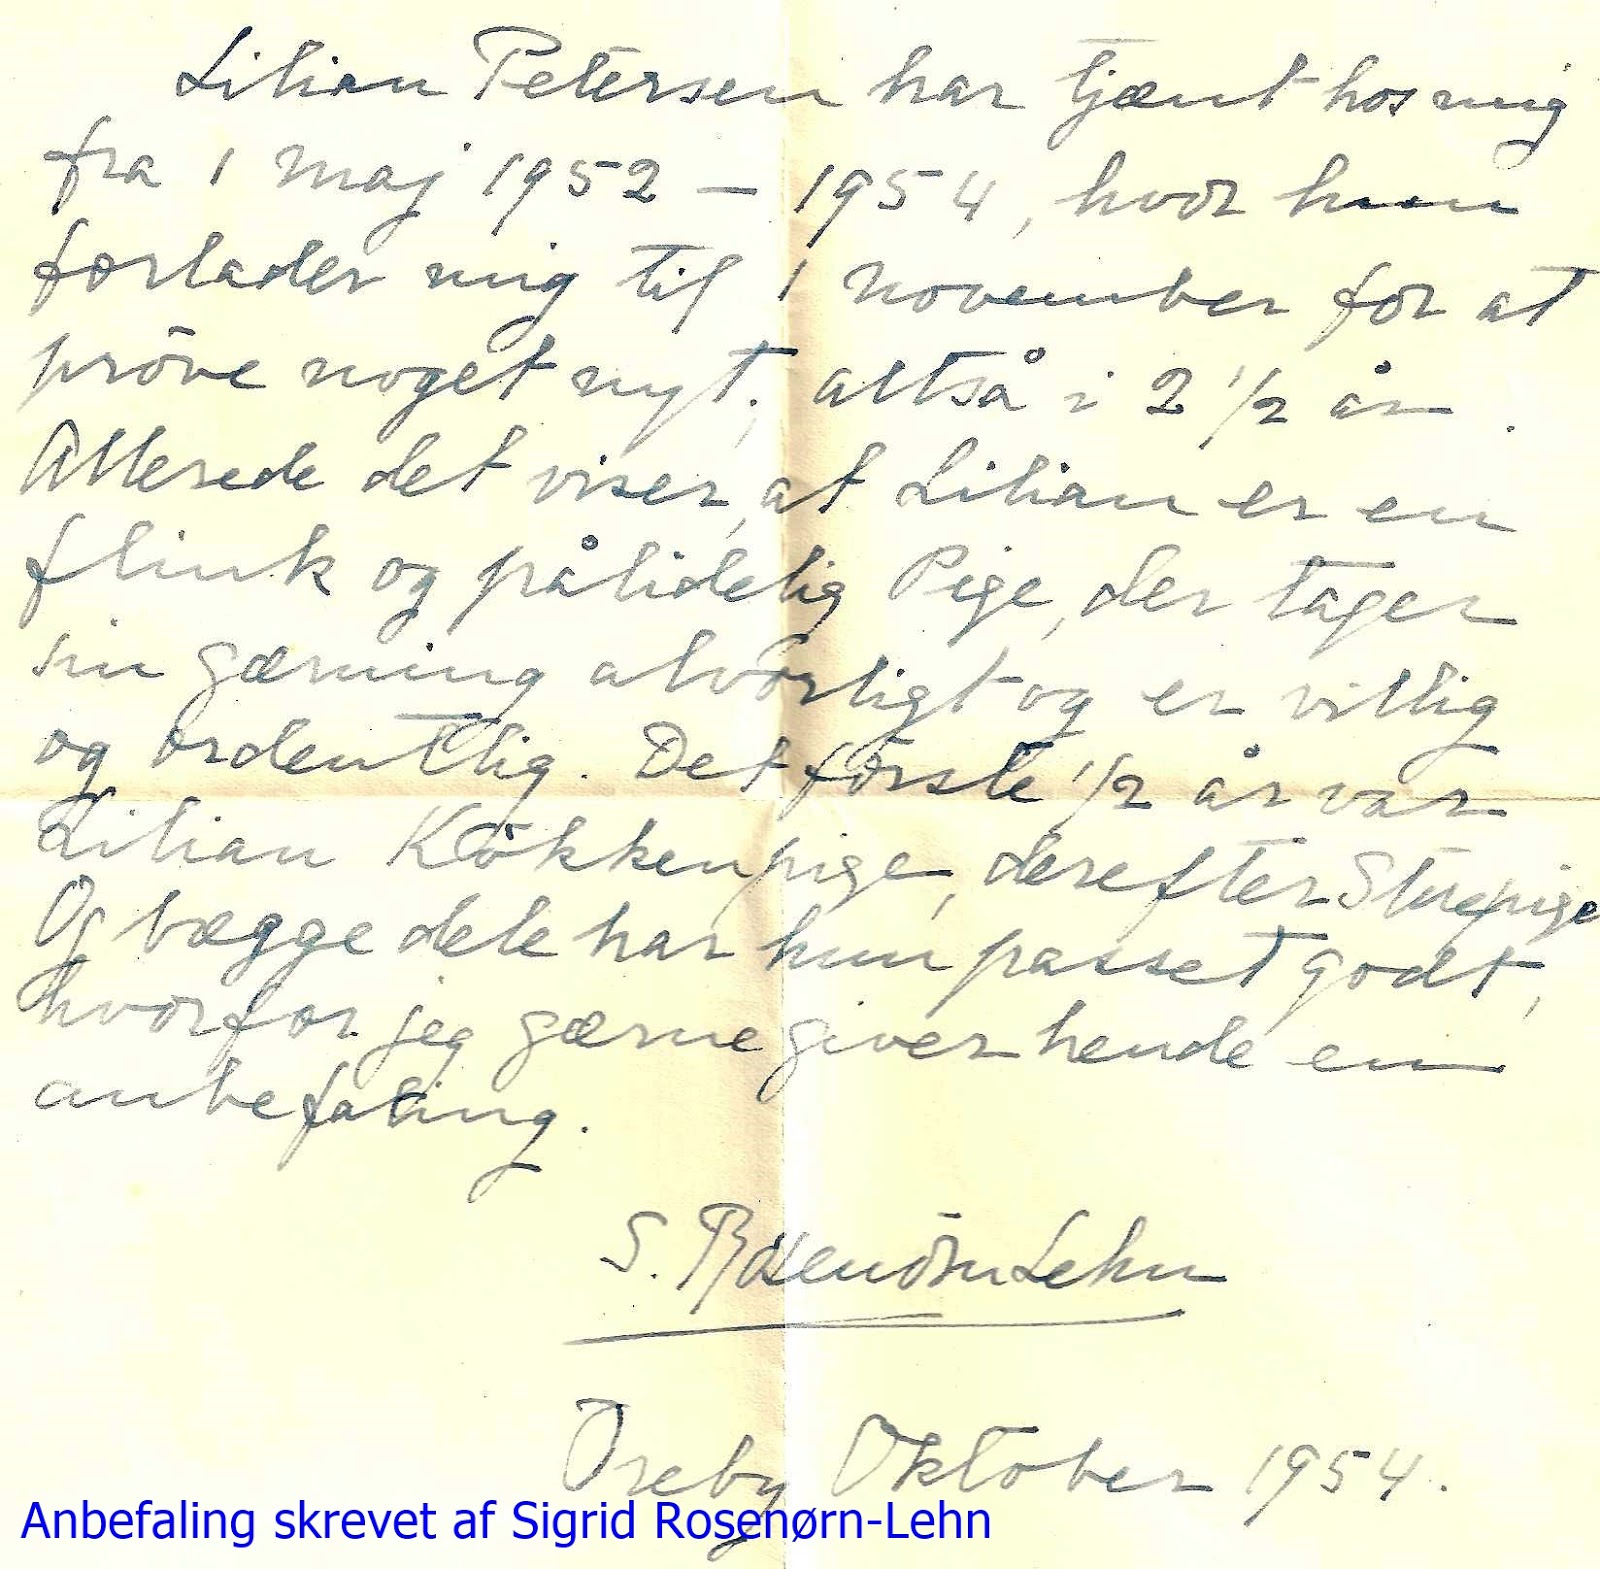 Lilian Petersen har tjænt hos mig
fra 1 maj 1952 — 1954, hvor hun
forlader mig til 1 november for at
pröve noget nyt; altså i 2 1/2 år.
Allerede det viser, at Lilian er en
flink og pålidelig Pige, der tager
sin gærning alvorligt og er villig
og ordentlig. Det første 1/2 år var
Lilian Kökkenpige, derefter Stuepige
Og bægge dele har hun passet godt,
hvorfor jeg gærne giver hende en
anbefaling.
S. Rosenörn Lehn
Oreby Oktober 1954.
Anbefaling skrevet af Sigrid Rosenørn-Lehn